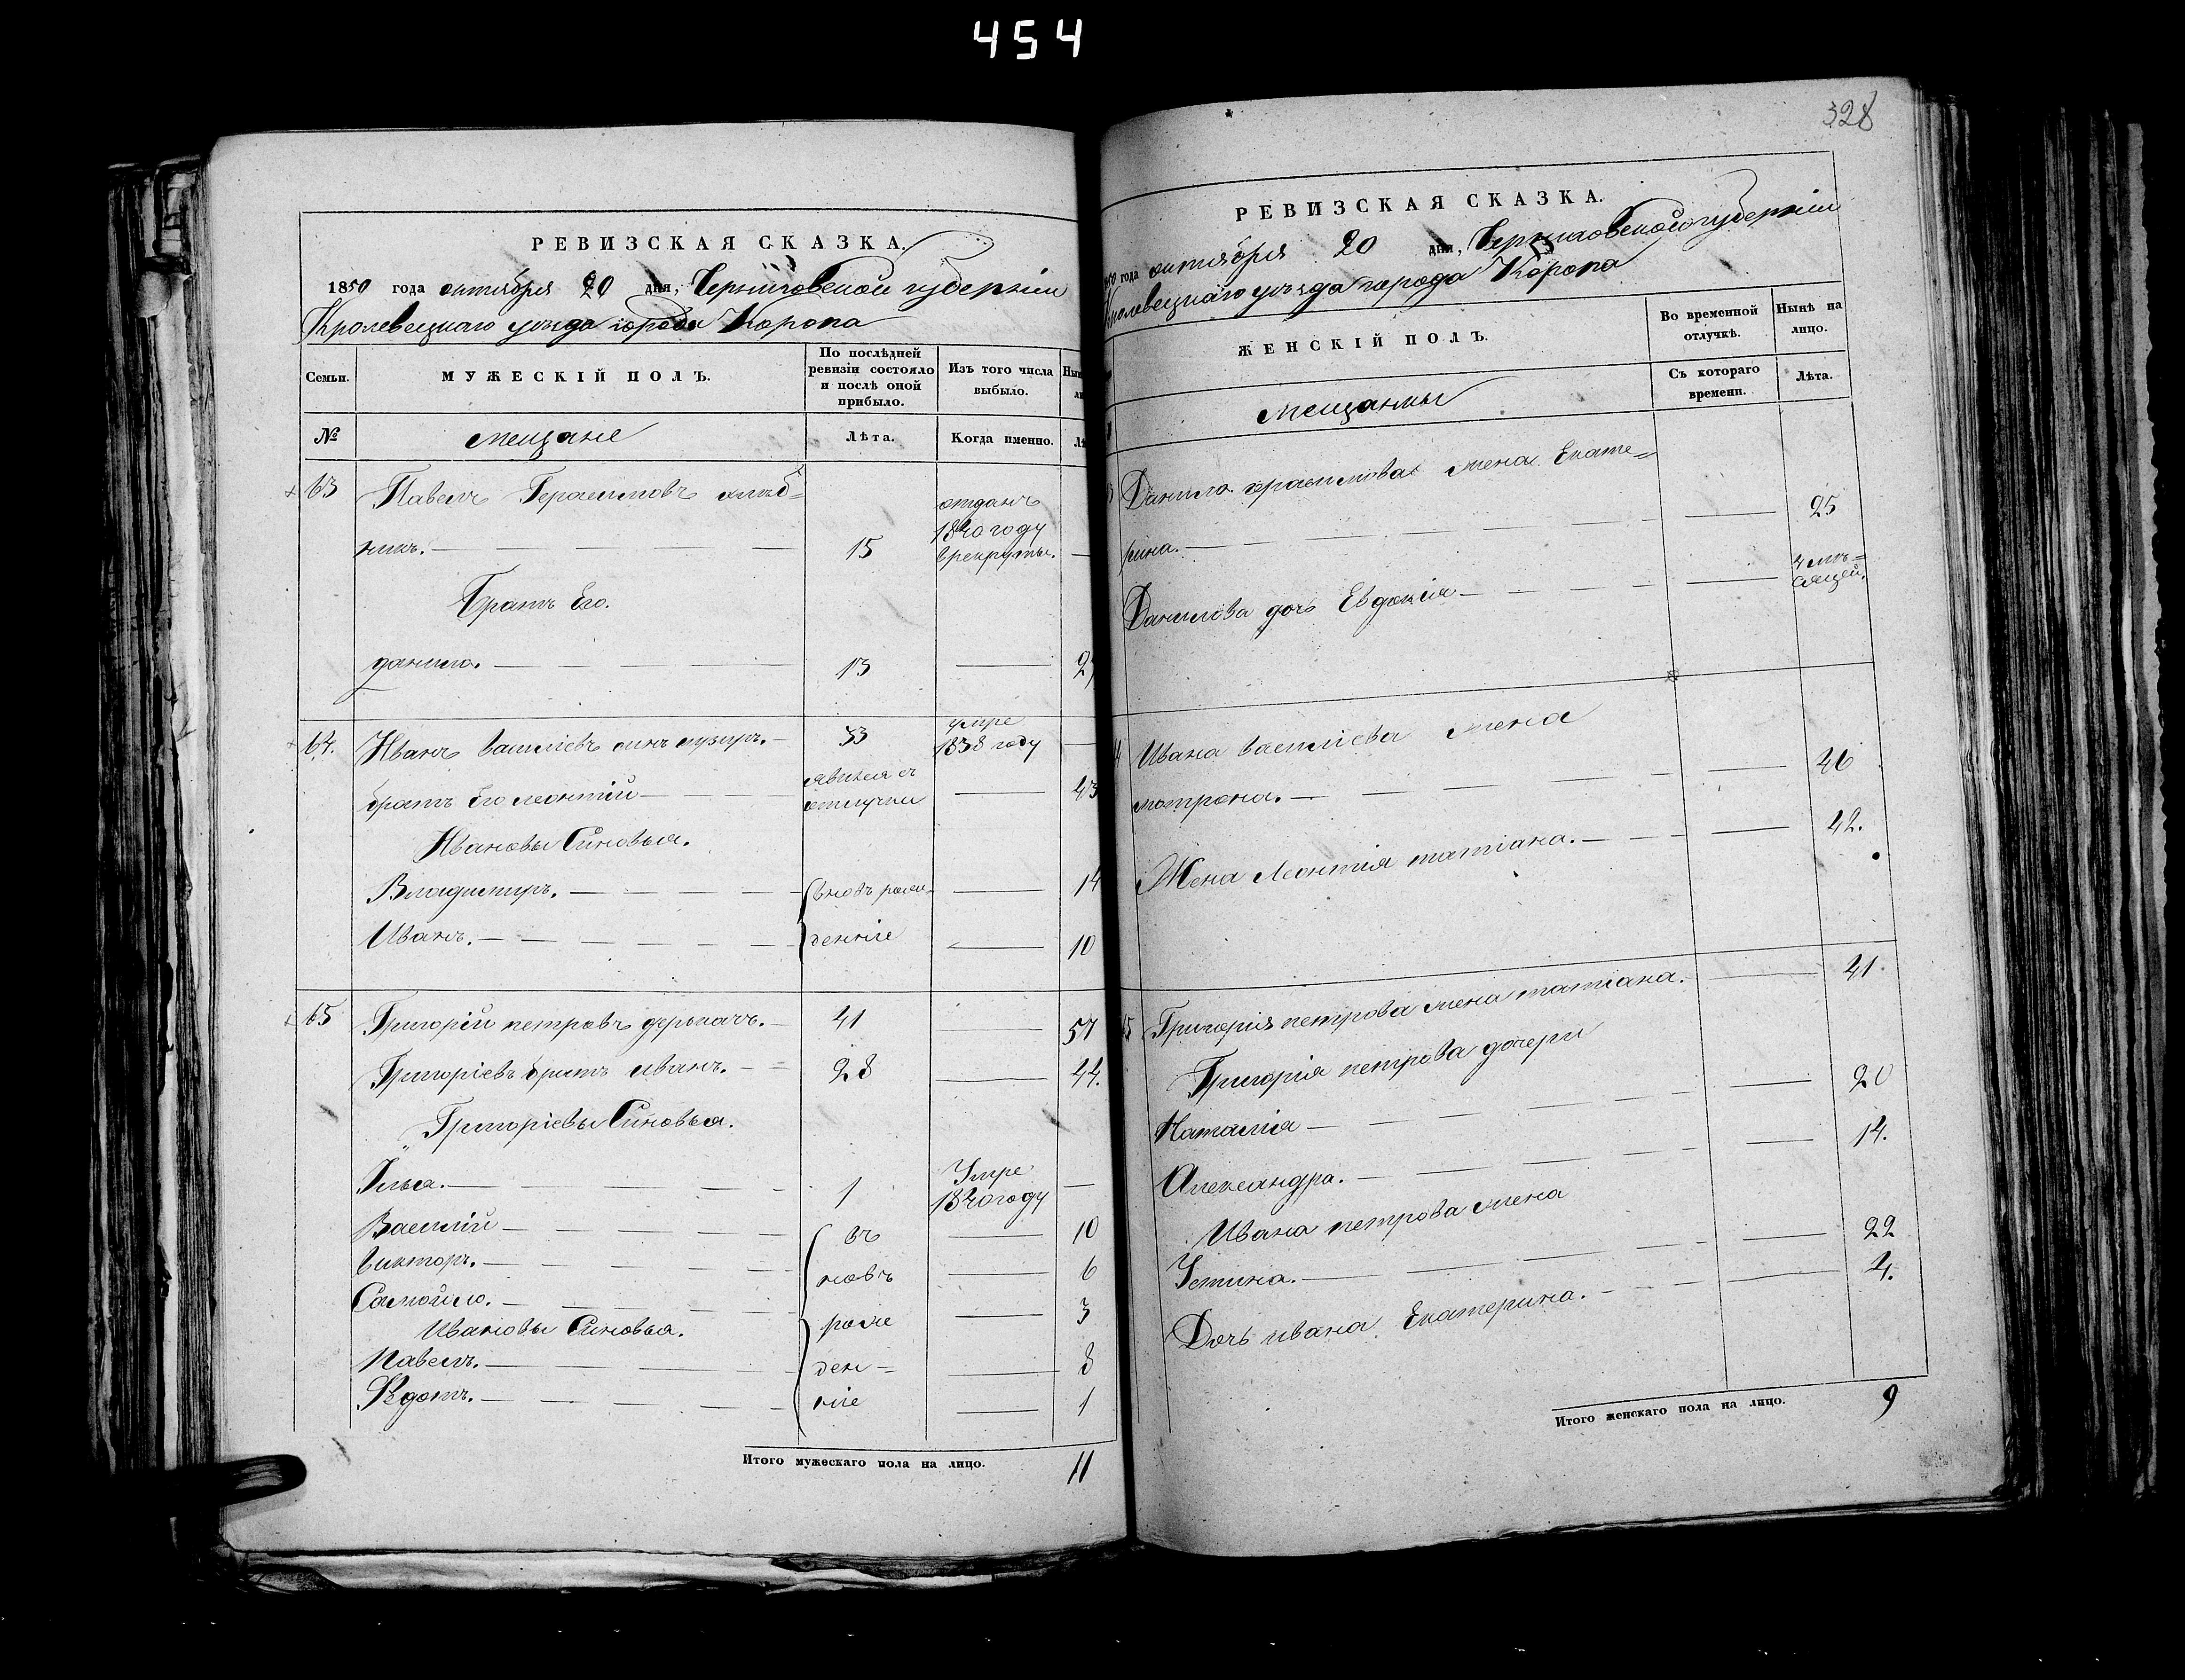 454
328
РЕВИЗСКАЯ СКАЗКА.
1850 года октября 20 дня, Черниговской губерніи
Кролевецкаго уезда города Коропа
Семьи.
МУЖЕСКІЙ ПОЛЪ.
По послѣдней ревизіи состояло и послѣ оной прибыло.
Изъ того числа выбыло.
№
мещане
Лѣта.
Когда именно.
63 Павелъ Герасимовъ хлеб=
никъ. — 15 отданъ 1840 году в рекруты. —
Братъ Его.
данило. — 13 —
64. Иванъ Василіевъ синъ — 33 умре 1838 году —
братъ Его леонтій — явился съ отлучки — 43
Ивановы Синовья.
Владимиръ. — вновь рож — 14
Иванъ. — денніе — 10
65 Григорій петровъ деркачъ. — 41 — 57
Григоріевъ братъ иванъ. — 28 — 44.
Григоріевы Синовья.
Илья. — 1 Умре 1840 году —
Василій — въ — 10
Викторъ. — новъ — 6
Самойло. — рож — 3
Ивановы Синовья.
Павелъ. — ден= — 8
Федотъ. — ніе — 1
Итого мужескаго пола на лицо. 11
РЕВИЗСКАЯ СКАЗКА.
года октября 20 дня, Черниговской губерніи
Кролевецкаго уезда города Коропа
ЖЕНСКІЙ ПОЛЪ.
Во временной отлучкѣ.
Нынѣ на лицо.
Съ котораго времени.
Лѣта.
мещанки
Данила герасимова жена Екате=
рина. — 25
Данилова дочь Евдокія — 4 мѣ=
сяцей.
Ивана василіева жена
мотрона. — 46
Жена Леонтія татіана. — 42.
65 Григорія петрова жена татіана. — 41.
Григорія петрова дочери
Наталія — 20
Александра. — 14.
Ивана петрова жена
Устина. — 22
Дочь ивана Екатерина. — 4.
Итого женскаго пола на лицо. 9